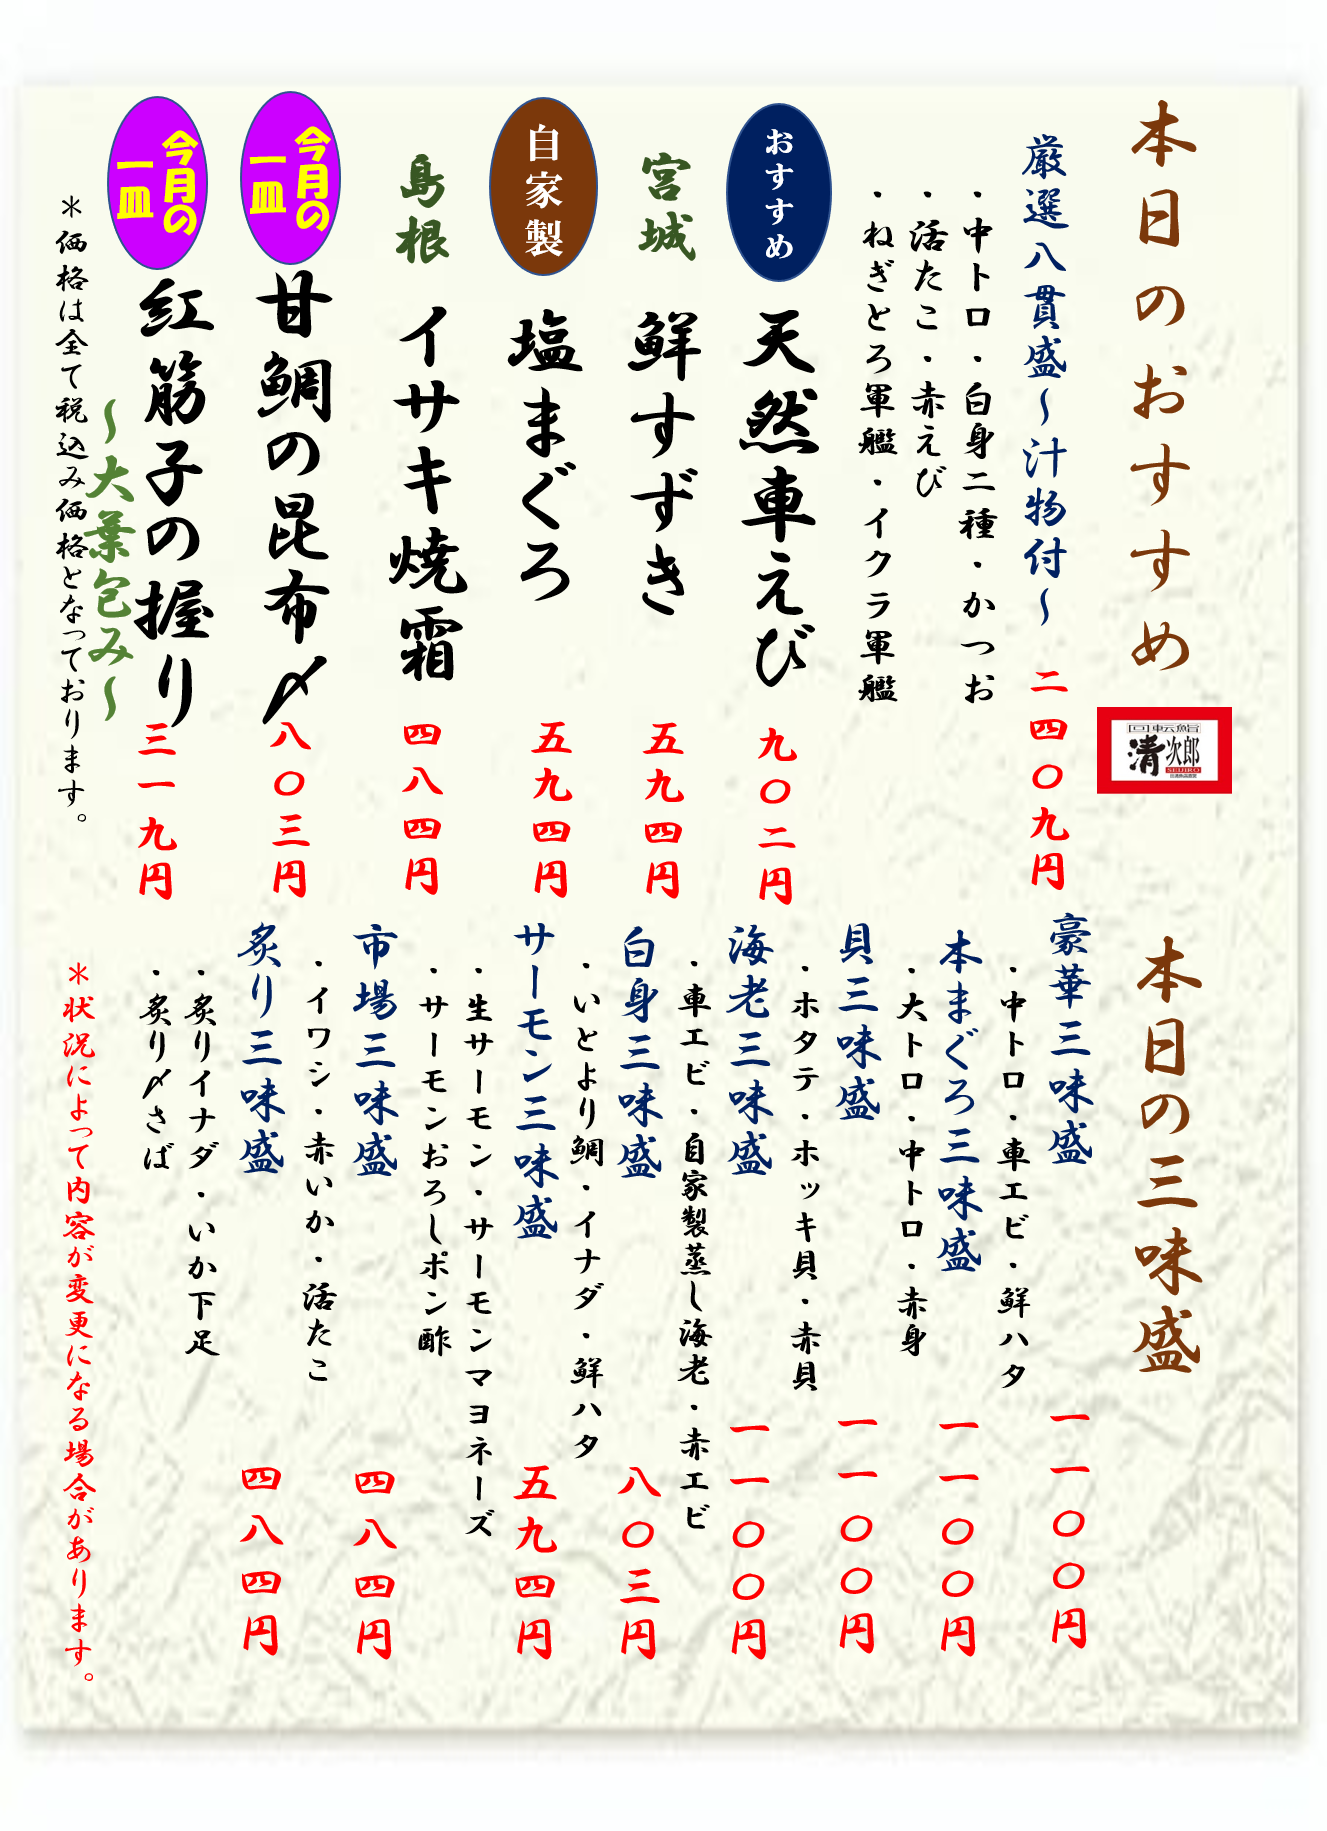 本日のおすすめ
回転鮨
清次郎
SEIJIRO
厳選八貫盛～汁物付～ 二四〇九円
・中トロ・白身二種・かつお
・活たこ・赤えび
・ねぎとろ軍艦・イクラ軍艦
おすすめ
天然車えび 九〇二円
宮城
鮮すずき 五九四円
自家製
塩まぐろ 五九四円
島根
イサキ焼霜 四八四円
今月の
一皿
甘鯛の昆布〆 八〇三円
今月の
一皿
紅筋子の握り 三一九円
～大葉包み～
＊価格は全て税込み価格となっております。
本日の三味盛
豪華三味盛 一一〇〇円
・中トロ・車エビ・鮮ハタ
本まぐろ三味盛 一一〇〇円
・大トロ・中トロ・赤身
貝三味盛 一一〇〇円
・ホタテ・ホッキ貝・赤貝
海老三味盛 一一〇〇円
・車エビ・自家製蒸し海老・赤エビ
白身三味盛 八〇三円
・いとより鯛・イナダ・鮮ハタ
サーモン三味盛 五九四円
・生サーモン・サーモンマヨネーズ
・サーモンおろしポン酢
市場三味盛 四八四円
・イワシ・赤いか・活たこ
炙り三味盛 四八四円
・炙りイナダ・いか下足
・炙り〆さば
＊状況によって内容が変更になる場合があります。